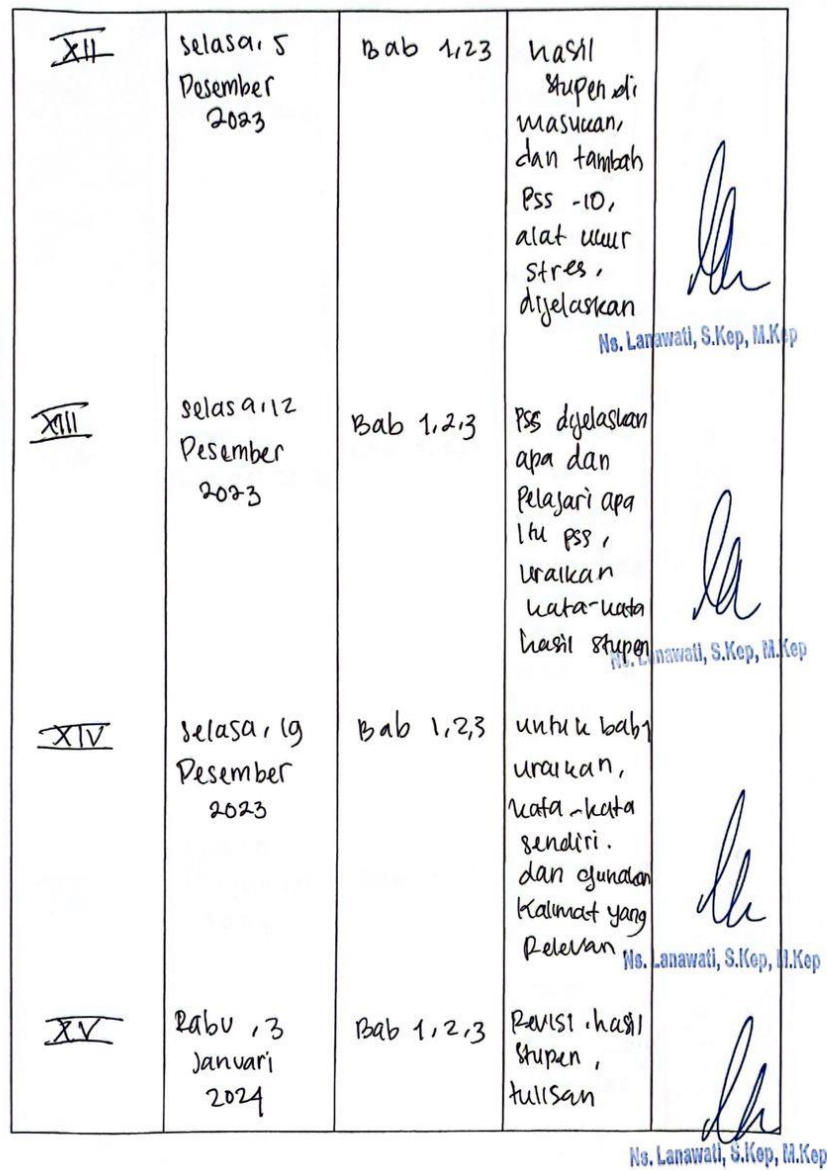 XII
Selasa, 5
Desember
2023
Bab 1,23
hasil
stupen di
masukan,
dan tambah
PSS -10,
alat ukur
stres,
dijelaskan
Ns. Lanawati, S.Kep, M.Kep
XIII
Selasa, 12
Desember
2023
Bab 1,2,3
PSS dijelaskan
apa dan
Pelajari apa
Itu PSS,
uraikan
kata-kata
hasil stupen
Ns. Lanawati, S.Kep, M.Kep
XIV
Selasa, 19
Desember
2023
Bab 1,2,3
untuk bab 1
uraikan,
kata-kata
sendiri.
dan gunakan
Kalimat yang
Relevan
Ns. Lanawati, S.Kep, M.Kep
XV
Rabu, 3
Januari
2024
Bab 1,2,3
Revisi hasil
stupen,
tulisan
Ns. Lanawati, S.Kep, M.Kep